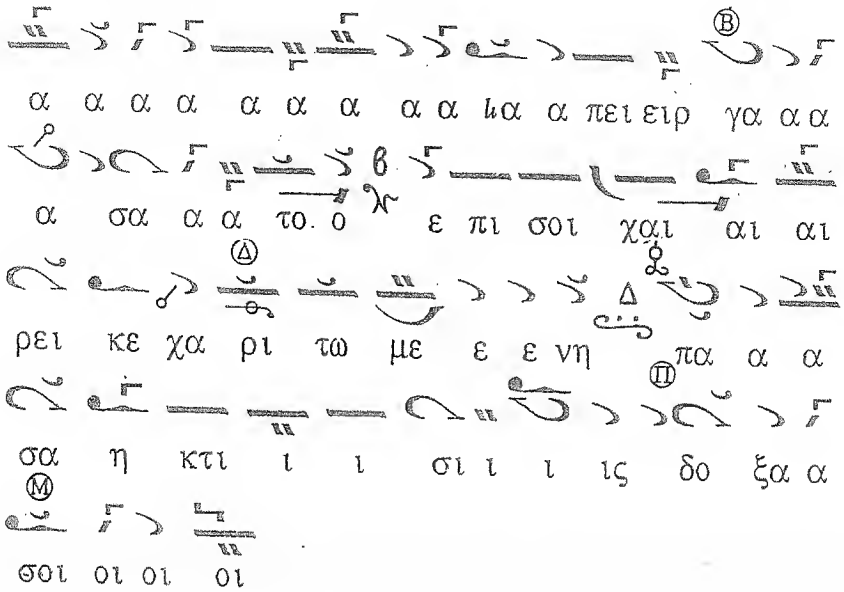 Β
α α α α α α α α α hα α πει ειρ γα α α
β
α σα α α το. ο ε πι σοι χαι αι αι
Δ Δ
ρει κε χα ρι τω με ε ε νη πα α α
Π
σα η κτι ι ι σι ι ι ις δο ξα α
Μ
σοι οι οι οι